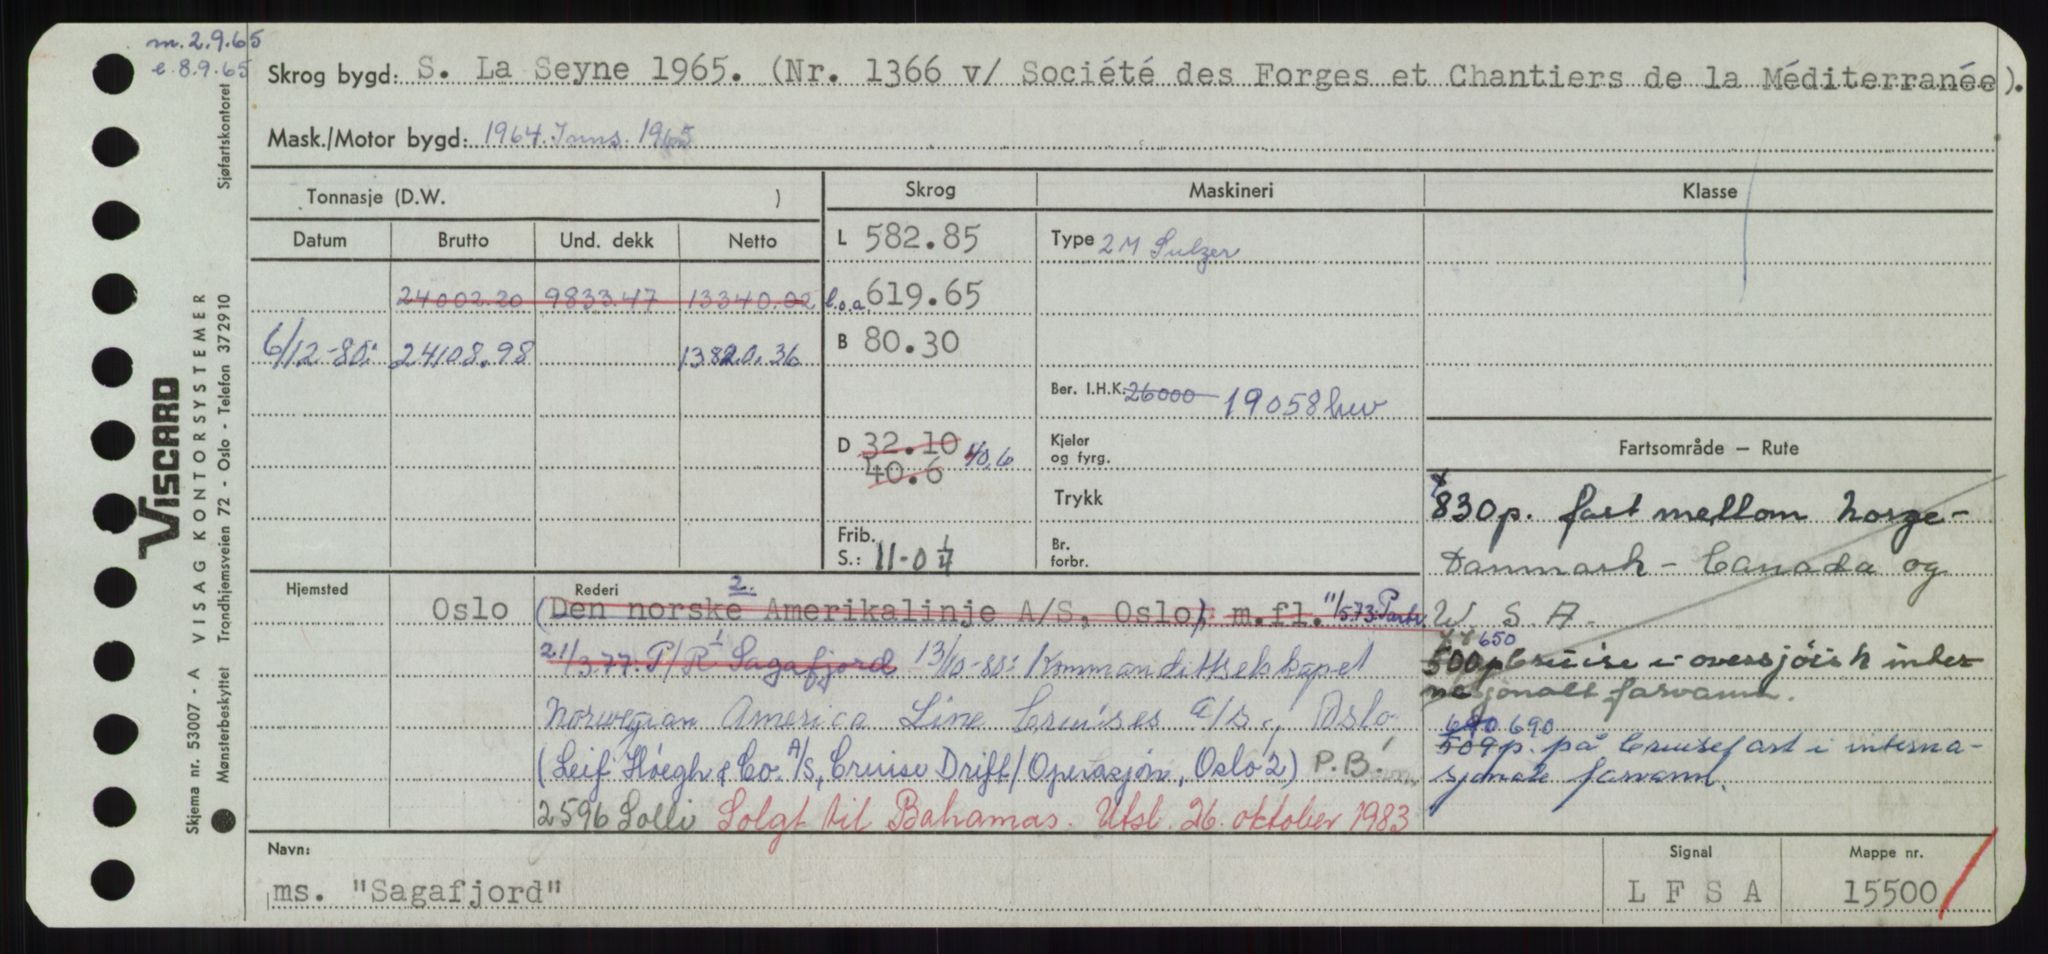 m. 2.9.65
e 8.9.65
Skrog bygd: S. La Seyne 1965. (Nr. 1366 v/ Société des Forges et Chantiers de la Méditerranée).
Mask./Motor bygd: 1964. Inns. 1965
Tonnasje (D.W. )
Skrog
Maskineri
Klasse
Datum Brutto Und. dekk Netto
L 582.85
Type 2 M Sulzer
24002.20 9833.47 13340.02
l.o.a. 619.65
6/12-80: 24108.98 13820.36
B 80.30
Ber. I.H.K. 26000 19058 hw
D 32.10 40.6
40.6
Kjeler
og fyrg.
Fartsområde — Rute
Trykk
Frib.
S.: 11-0 1/4
Br.
forbr.
830p. fast mellom Norge-
Danmark - Canada og
U.S.A.
650
500p Cruise i oversjøisk inter-
nasjonalt farvann.
690
509p. på Cruisefart i interna-
sjonale farvann.
Hjemsted
Rederi
2.
Oslo (Den norske Amerikalinje A/S, Oslo), m.fl. 11/573: Partr.
21/3.77. P/R Sagafjord 13/10-80: Kommandittselskapet
Norwegian America Line Cruises A/S, Oslo
(Leif Höegh & Co. A/S, Cruise Drift/Operasjon, Oslo 2) P.B.
2596 Solli Solgt til Bahamas. Utsl. 26. oktober 1983
Navn:
ms. "Sagafjord"
Signal
LFSA
Mappe nr.
15500
VISCARD
VISAG KONTORSYSTEMER
Skjema nr. 53007 - A
Mønsterbeskyttet
Trondhjemsveien 72 - Oslo - Telefon 372910
Sjøfartskontoret